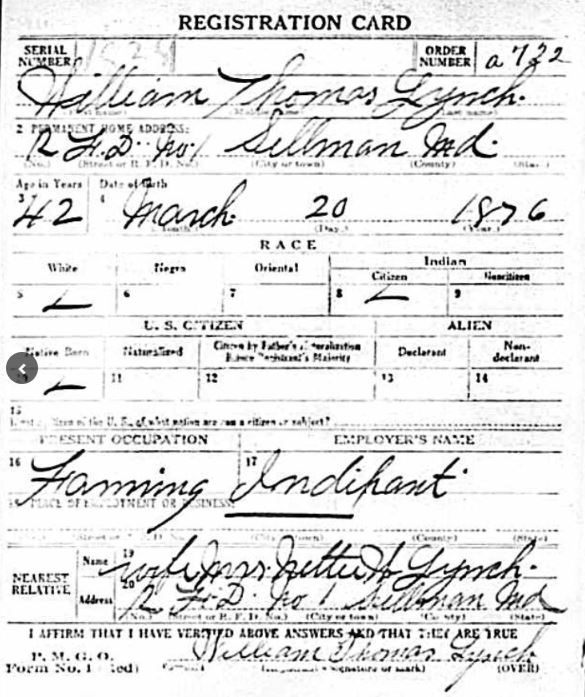 REGISTRATION CARD
SERIAL NUMBER
ORDER NUMBER a 722
William Thomas Lynch.
2 PERMANENT HOME ADDRESS:
R. F. D. No. 1 Sellman Md.
(No.) (Street or R. F. D. No.) (City or town) (County) (State)
Age in Years Date of Birth
3 42 4 March 20 1876
(Month) (Day) (Year)
RACE
White Negro Oriental Indian
Citizen Noncitizen
5 6 7 8 9
U. S. CITIZEN ALIEN
Native Born Naturalized Citizen by Father's Naturalization Before Registrant's Majority Declarant Non-declarant
10 11 12 13 14
15
If not a citizen of the U. S., of what nation are you a citizen or subject?
PRESENT OCCUPATION EMPLOYER'S NAME
16 Farming 17 Indipant
18 PLACE OF EMPLOYMENT OR BUSINESS:
(No.) (Street or R. F. D. No.) (City or town) (County) (State)
NEAREST RELATIVE Name 19 wife Mrs Nettie W Lynch.
Address 20 R. F. D. No 1 Sellman Md
(No.) (Street or R. F. D. No.) (City or town) (County) (State)
I AFFIRM THAT I HAVE VERIFIED ABOVE ANSWERS AND THAT THEY ARE TRUE
P. M. G. O.
Form No. 1 (Red) William Thomas Lynch
(Registrant's signature or mark) (OVER)